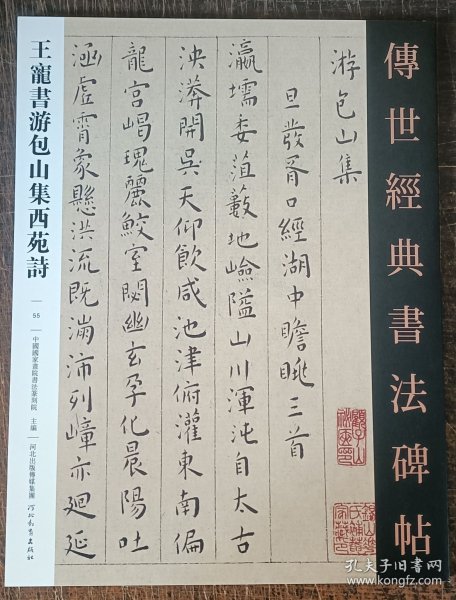 傳世經典書法碑帖
游包山集
旦發胥口經湖中瞻眺三首
瀛壖委菹藪地嶮隘山川渾沌自太古
泱漭開吳天仰飲咸池津俯灌東南偏
龍宮崛瑰麗鮫室閟幽玄孕化晨陽吐
涵虛霄象懸洪流既滿沛列嶂亦廻延
王寵書游包山集西苑詩
55
中國國家畫院書法篆刻院 主編
河北出版傳媒集團
河北教育出版社
孔夫子旧书网
www.kongfz.com